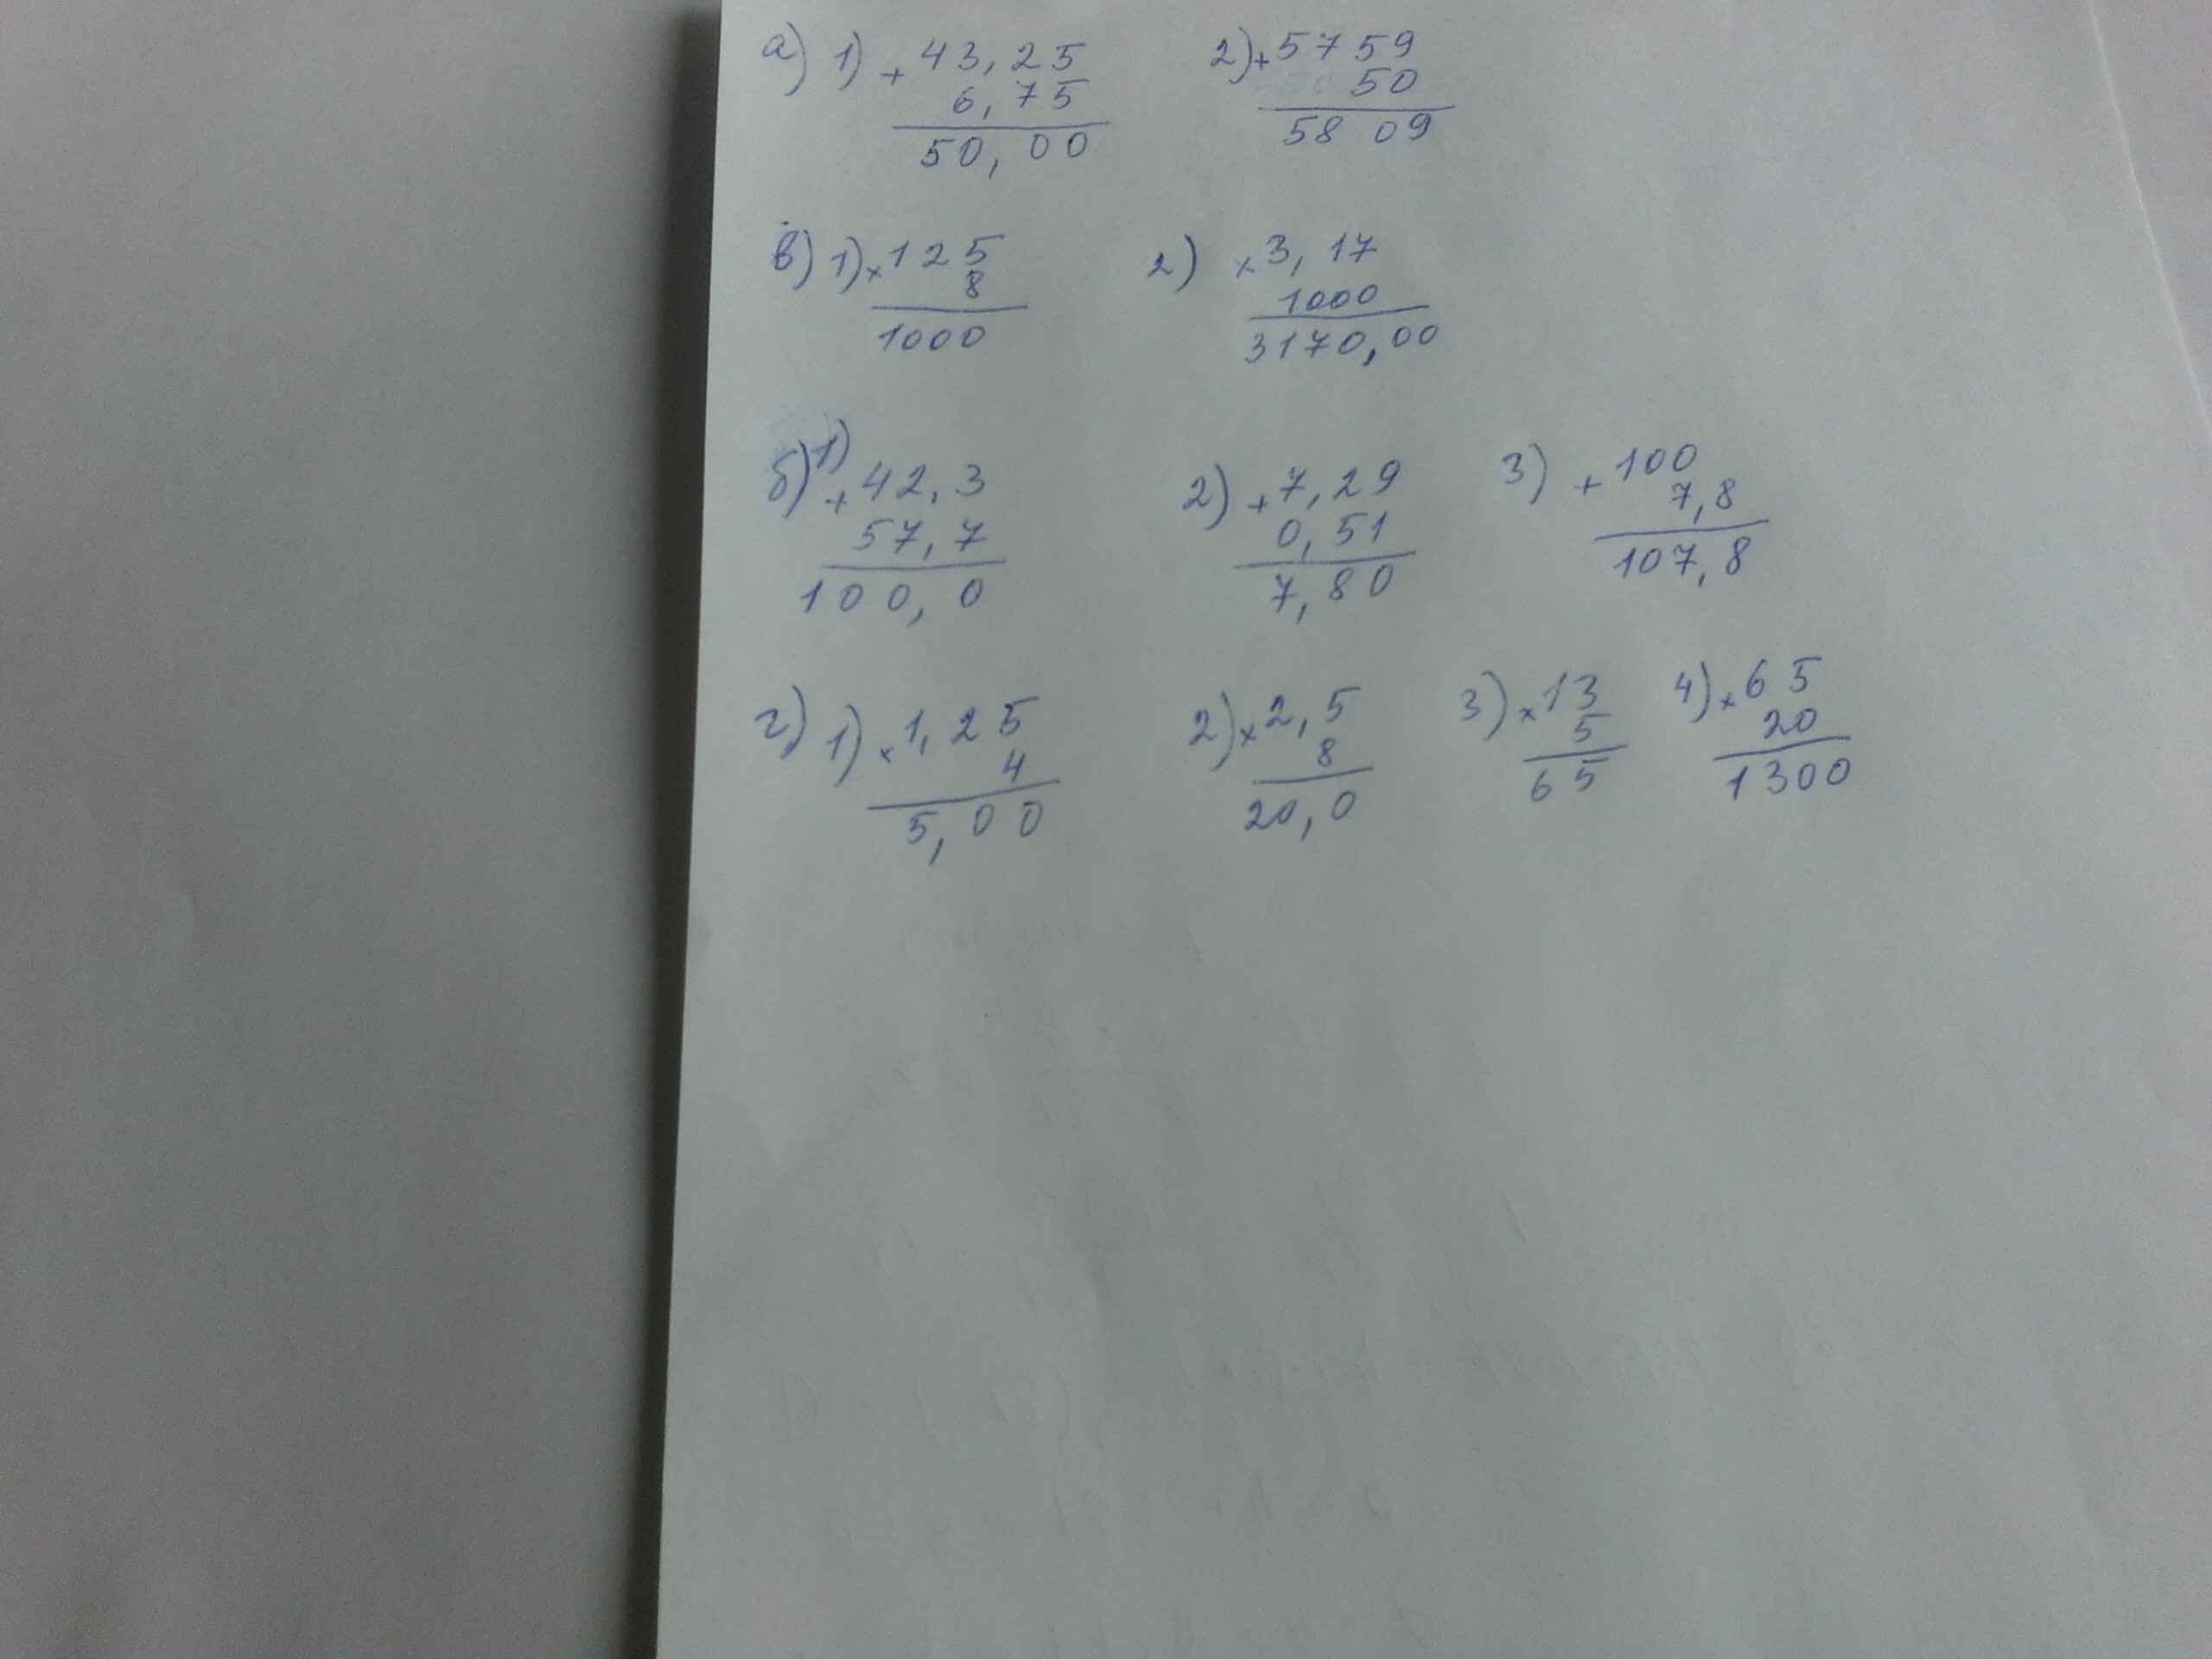 а) 1) + 43,25 2) + 5759
6,75 50
50,00 5809
в) 1) × 125 2) × 3,17
8 1000
1000 3170,00
б) 1) + 42,3 2) + 7,29 3) + 100
57,7 0,51 7,8
100,0 7,80 107,8
г) 1) × 1,25 2) × 2,5 3) × 13 4) × 65
4 8 5 20
5,00 20,0 65 1300